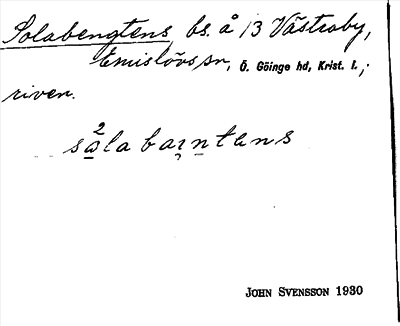 Solabengtens, bs. å 13 Västraby,
Emislövs sn, Ö. Göinge hd, Krist. l.,
riven.
2
sa̲la baı̣n̲tens
JOHN SVENSSON 1930